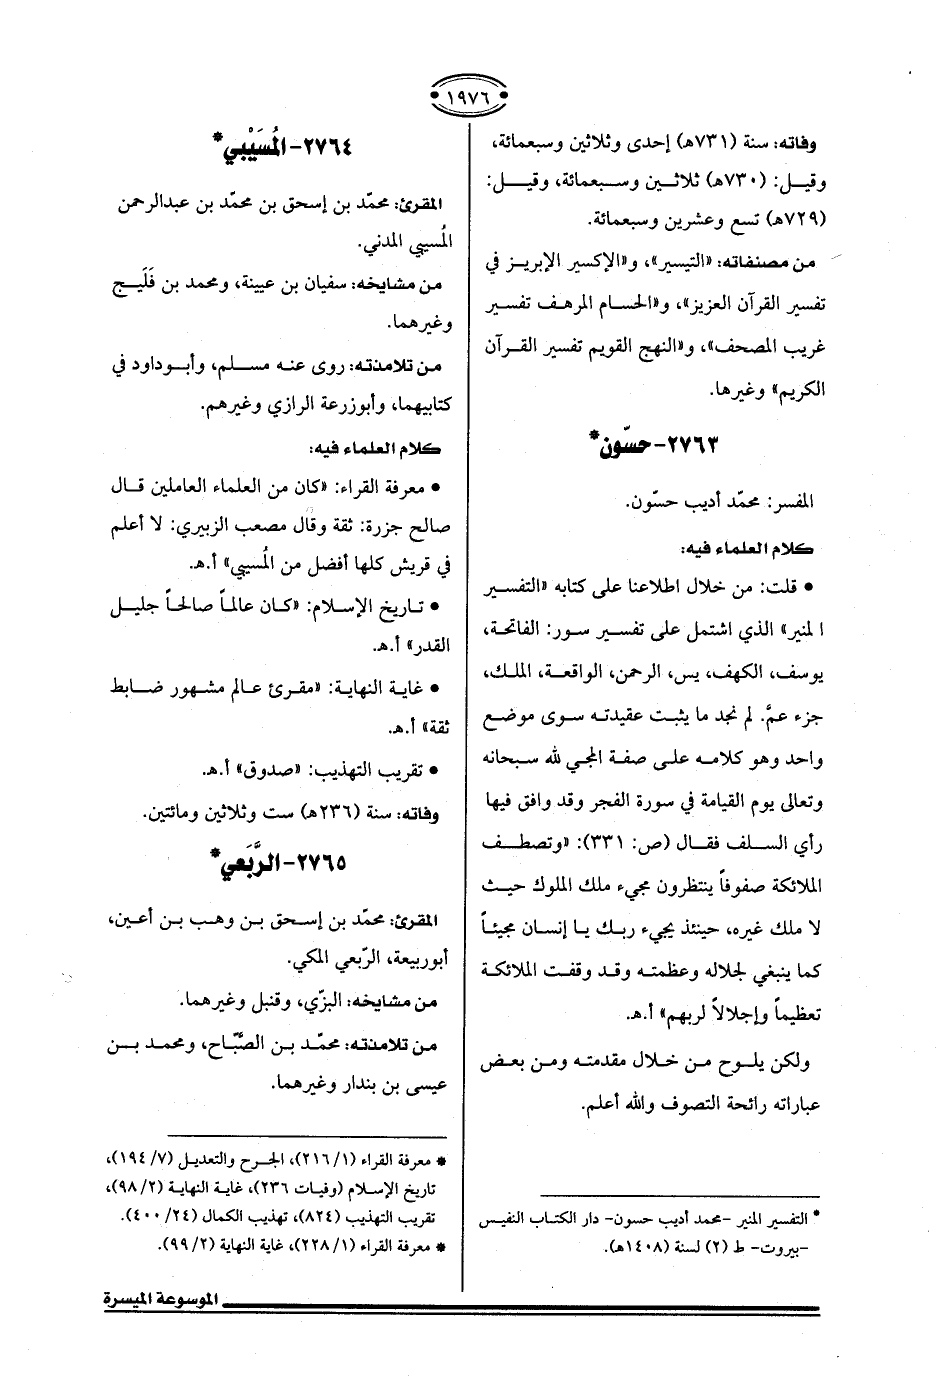 ١٩٧٦
وفاته: سنة (٧٣١هـ) إحدى وثلاثين وسبعمائة،
وقيل: (٧٣٠هـ) ثلاثين وسبعمائة، وقيل:
(٧٢٩هـ) تسع وعشرين وسبعمائة.
من مصنفاته: «التيسير»، و«الإكسير الإبريز في
تفسير القرآن العزيز»، و«الحسام المرهف تفسير
غريب المصحف»، و«النهج القويم تفسير القرآن
الكريم» وغيرها.
٢٧٦٣- حسّون*
المفسر: محمّد أديب حسّون.
كلام العلماء فيه:
• قلت: من خلال اطلاعنا على كتابه «التفسير
المنير» الذي اشتمل على تفسير سور: الفاتحة،
يوسف، الكهف، يس، الرحمن، الواقعة، الملك،
جزء عمَّ. لم نجد ما يثبت عقيدته سوى موضع
واحد وهو كلامه على صفة المجي لله سبحانه
وتعالى يوم القيامة في سورة الفجر وقد وافق فيها
رأي السلف فقال (ص: ٣٣١): «وتصطف
الملائكة صفوفاً ينتظرون مجيء ملك الملوك حيث
لا ملك غيره، حينئذ يجيء ربك يا إنسان مجيئاً
كما ينبغي لجلاله وعظمته وقد وقفت الملائكة
تعظيماً وإجلالاً لربهم» أ.هـ.
ولكن يلوح من خلال مقدمته ومن بعض
عباراته رائحة التصوف والله أعلم.
* التفسير المنير -محمد أديب حسون- دار الكتاب النفيس
-بيروت- ط (٢) لسنة (١٤٠٨هـ).
٢٧٦٤- المُسَيْبي*
المقرئ: محمّد بن إسحق بن محمّد بن عبدالرحمن
المُسيبي المدني.
من مشايخه: سفيان بن عيينة، ومحمد بن فَلَيج
وغيرهما.
من تلامذته: روى عنه مسلم، وأبوداود في
كتابيهما، وأبوزرعة الرازي وغيرهم.
كلام العلماء فيه:
• معرفة القراء: «كان من العلماء العاملين قال
صالح جزرة: ثقة وقال مصعب الزبيري: لا أعلم
في قريش كلها أفضل من المُسيبي» أ.هـ.
• تاريخ الإسلام: «كان عالماً صالحاً جليل
القدر» أ.هـ.
• غاية النهاية: «مقرئ عالم مشهور ضابط
ثقة» أ.هـ.
• تقريب التهذيب: «صدوق» أ.هـ.
وفاته: سنة (٢٣٦هـ) ست وثلاثين ومائتين.
٢٧٦٥- الرَّبَعي*
المقرئ: محمّد بن إسحق بن وهب بن أعين،
أبوربيعة، الرّبعي المكي.
من مشايخه: البزّي، وقنبل وغيرهما.
من تلامذته: محمّد بن الصَّبَّاح، ومحمد بن
عيسى بن بندار وغيرهما.
* معرفة القراء (١/٢١٦)، الجرح والتعديل (٧/١٩٤)،
تاريخ الإسلام (وفيات ٢٣٦)، غاية النهاية (٢/٩٨)،
تقريب التهذيب (٨٢٤)، تهذيب الكمال (٢٤/٤٠٠).
* معرفة القراء (١/٢٢٨)، غاية النهاية (٢/٩٩).
الموسوعة الميسرة